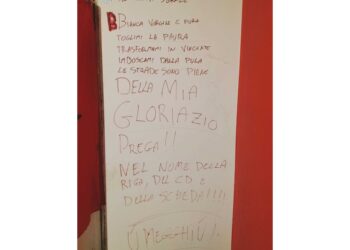 BIANCA VERGINE E PURA
TOGLIMI LA PAURA
TRASFORMAMI IN VINCENTE
INDOSCAMI DALLA PULA
LE STRADE SONO PIENE
DELLA MIA
GLORIA ZIO
PREGA!!
NEL NOME DELLA
RIGA, DEL CD E
DELLA SCHEDA!!!